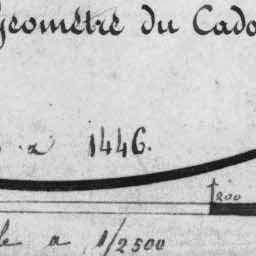 Géometre du Cado
a 1446.
200
le a 1/2500